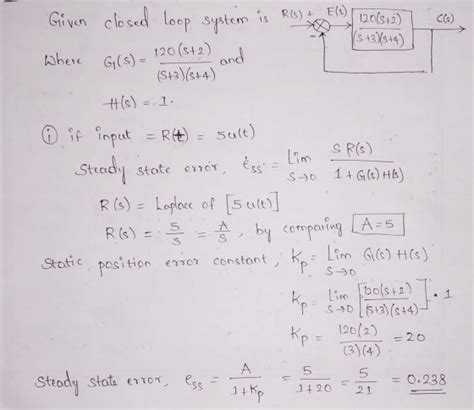 Given closed loop system is
R(s) + E(s) 120(s+2) / (s+3)(s+4) C(s)
-
Where G(s) = 120(s+2) / (s+3)(s+4) and
H(s) = 1.
(i) if input = R(t) = 5u(t)
Steady state error, ess = Lim s→0 S R(s) / 1+G(s)H(s)
R(s) = Laplace of [5u(t)]
R(s) = 5/s = A/s, by comparing A=5
Static position error constant, Kp = Lim s→0 G(s) H(s)
Kp = Lim s→0 [120(s+2) / (s+3)(s+4)] · 1
Kp = 120(2) / (3)(4) = 20
Steady state error, ess = A / 1+Kp = 5 / 1+20 = 5/21 = 0.238